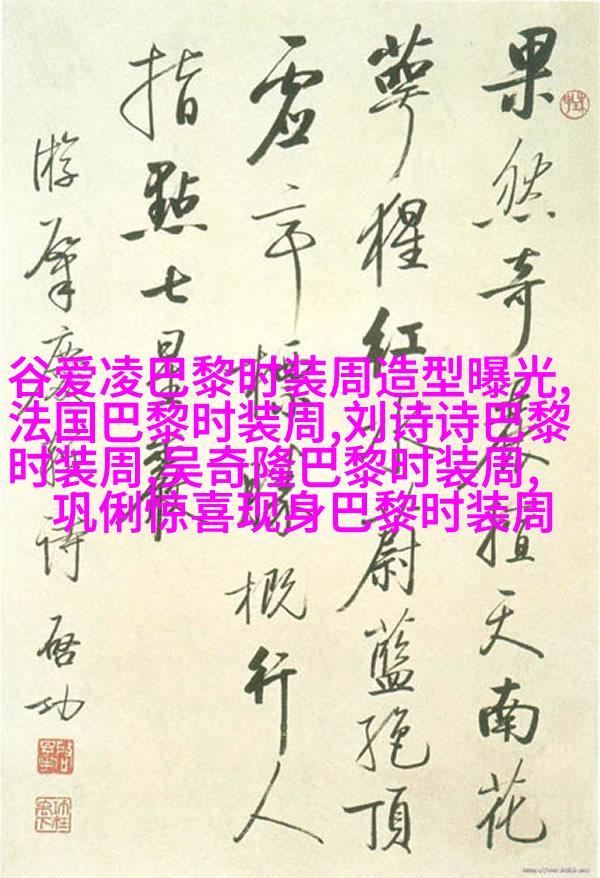 果然奇秀擅天南花
萼猩紅蔚藍絕頂
虛亭標勝概行人
指點七星巖
游肇慶雜詩 啟功
谷爱凌巴黎时装周造型曝光,
法国巴黎时装周,刘诗诗巴黎
时装周,吴奇隆巴黎时装周,
巩俐惊喜现身巴黎时装周